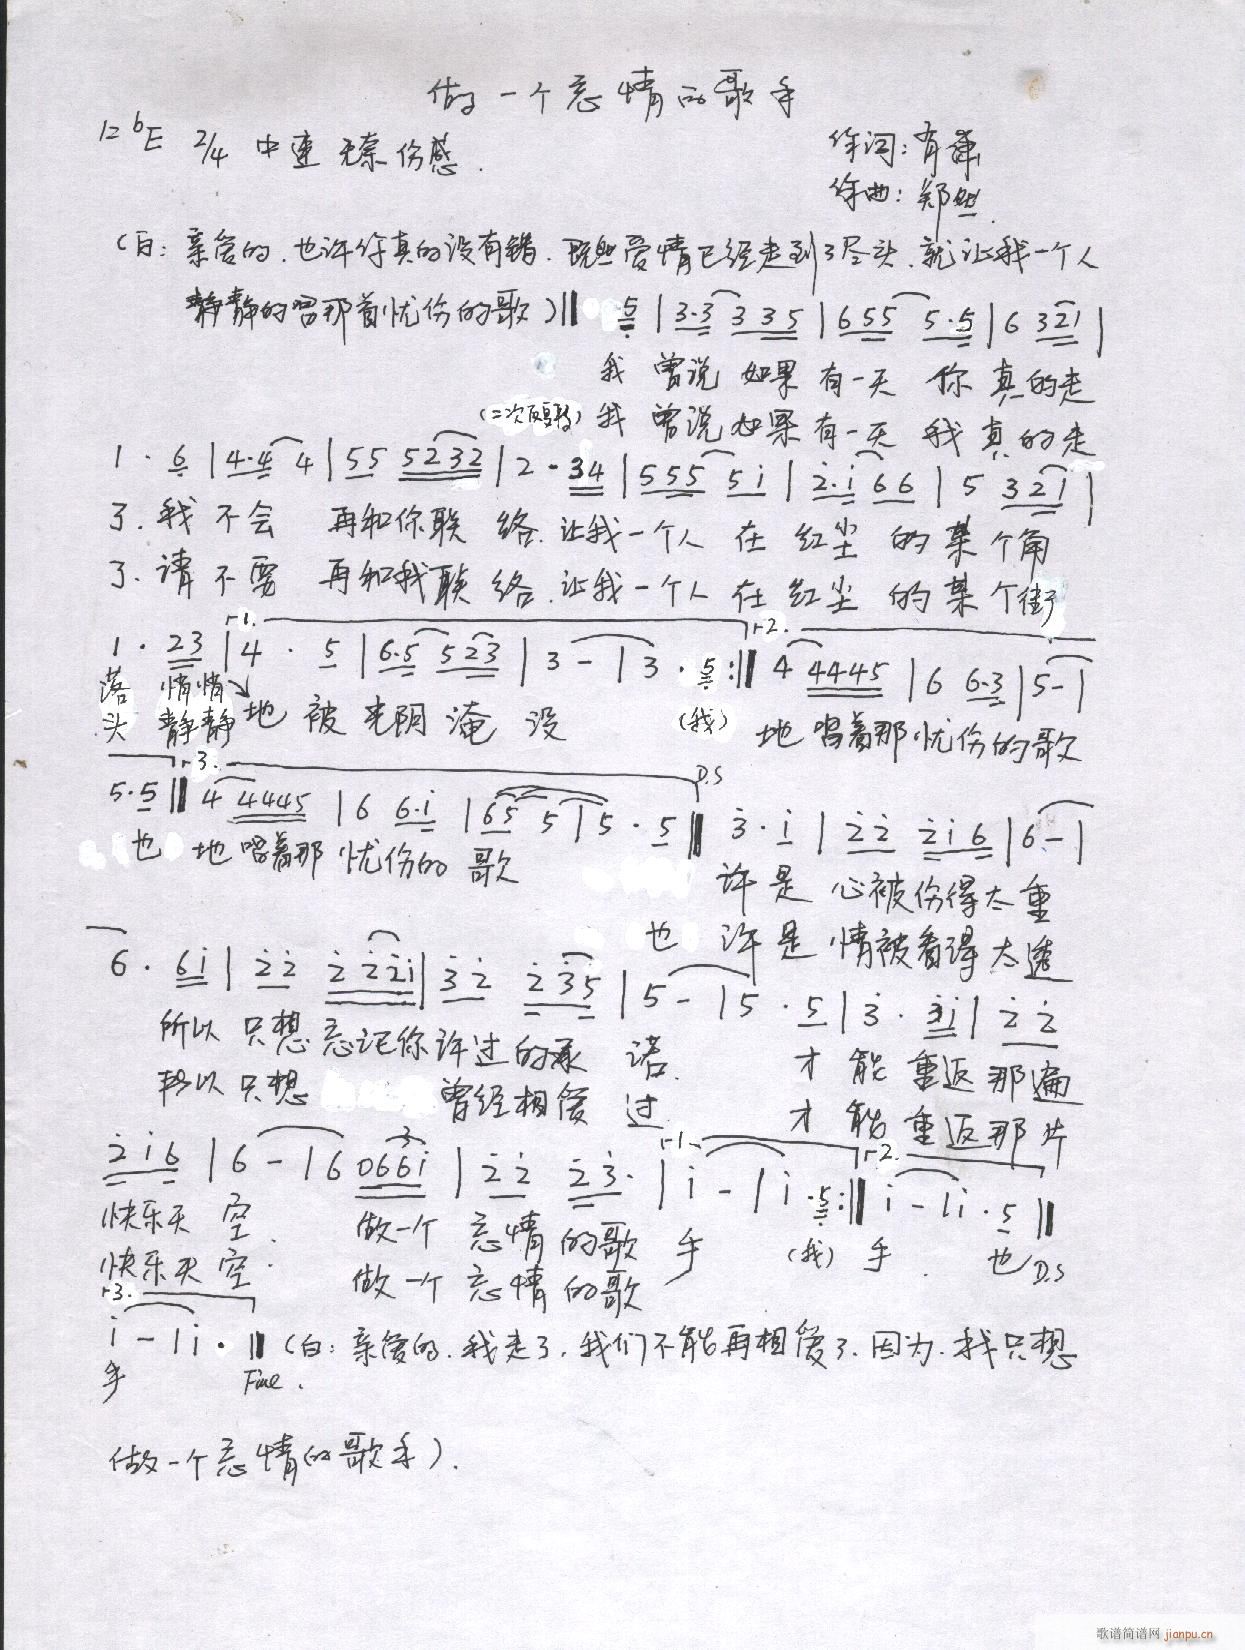 做一个忘情的歌手
1=bE 2/4 中速 无奈 伤感.
作词:有
作曲:郑然
(白:亲爱的.也许你真的没有错.既然爱情已经走到了尽头.就让我一个人
静静的唱那首忧伤的歌)‖ 5 | 3·3 3 3 5 | 6 5 5 5·5 | 6 3 2 1 |
我 曾说 如果 有一天 你 真的走
(二次反复) 我 曾说 如果 有一天 我 真的走
1 · 6 | 4·4 4 | 5 5 5 2 3 2 | 2 · 3 4 | 5 5 5 5 i | 2·i 6 6 | 5 3 2 1 |
了.我 不会 再和你联 络.让我一个人 在 红尘 的 某个角
了.请 不要 再和我联 络.让我一个人 在 红尘 的 某个街
1 · 2 3 | 1. 4 · 5 | 6·5 5 2 3 | 3 - | 3 · 5 :‖ 2. 4 4 4 4 5 | 6 6·3 | 5 - |
落 悄悄 地 被 光阴 淹 没 (我) 地 唱着那 忧伤的 歌
头 静静
5·5 ‖ 3. 4 4 4 4 5 | 6 6·i | 6 5 5 | 5 · 5 ‖ D.S 3 · i | 2 2 2 i 6 | 6 - |
也 地 唱着那 忧伤的 歌 许 是 心被伤得太 重
也 许 是 情被看得 太 透
6 · 6 i | 2 2 2 2 2 i | 3 2 2 3 5 | 5 - | 5 · 5 | 3 · 3 i | 2 2
所以 只想 忘记你 许过 的承 诺. 才 能 重返 那遍
所以 只想 曾经相爱 过 才 能 重返 那片
2 i 6 | 6 - | 6 0 6 6 i | 2 2 2 3· | 1. i - | i · 5 :‖ 2. i - | i · 5 ‖
快乐天 空. 做一个 忘情 的歌 手 (我) 手. 也 D.S
快乐天 空. 做一个 忘情 的歌
3. i - | i · ‖ (白:亲爱的.我走了.我们不能再相爱了.因为.我只想
手 Fine.
做一个忘情的歌手).
歌谱简谱网 jianpu.cn